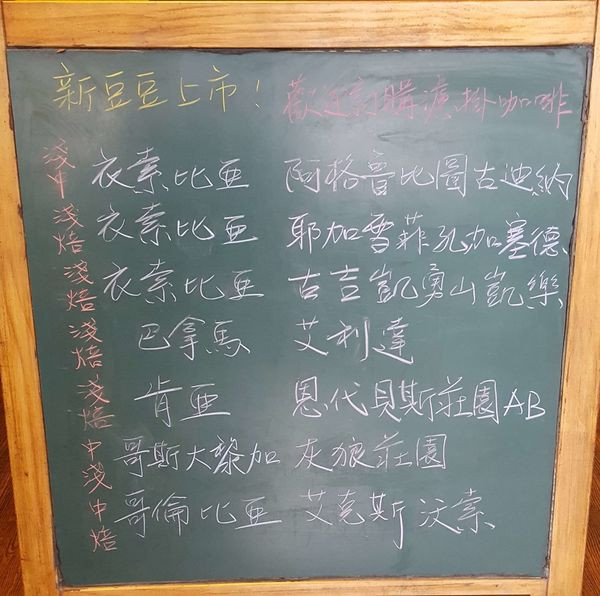 新豆豆上市! 歡迎訂購濾掛咖啡
淺中 衣索比亞 阿格魯比圖古迪納
淺焙 衣索比亞 耶加雪菲孔加塞德
淺焙 衣索比亞 古吉凱勇山凱樂
淺焙 巴拿馬 艾利達
淺焙 肯亞 恩代貝斯莊園AB
中淺 哥斯大黎加 灰狼莊園
中焙 哥倫比亞 艾克斯沃索